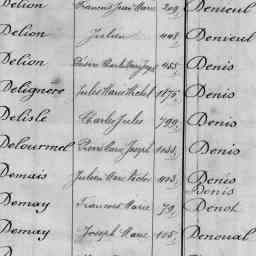 Delion François Jean Marie 209 Denieul
Delion Julien 448 Denieul
Delion Pierre Marie Joseph 455 Denis
Delignere Jules Marie Michel 1875 Denis
Delisle Charles Jules 790 Denis
Delourmel Pierre Marie Joseph 1033 Denis
Demais Julien Marie Victor 403 Denis
Denis
Demay François Marie 79 Denot
Demay Joseph Marie 105 Denoual